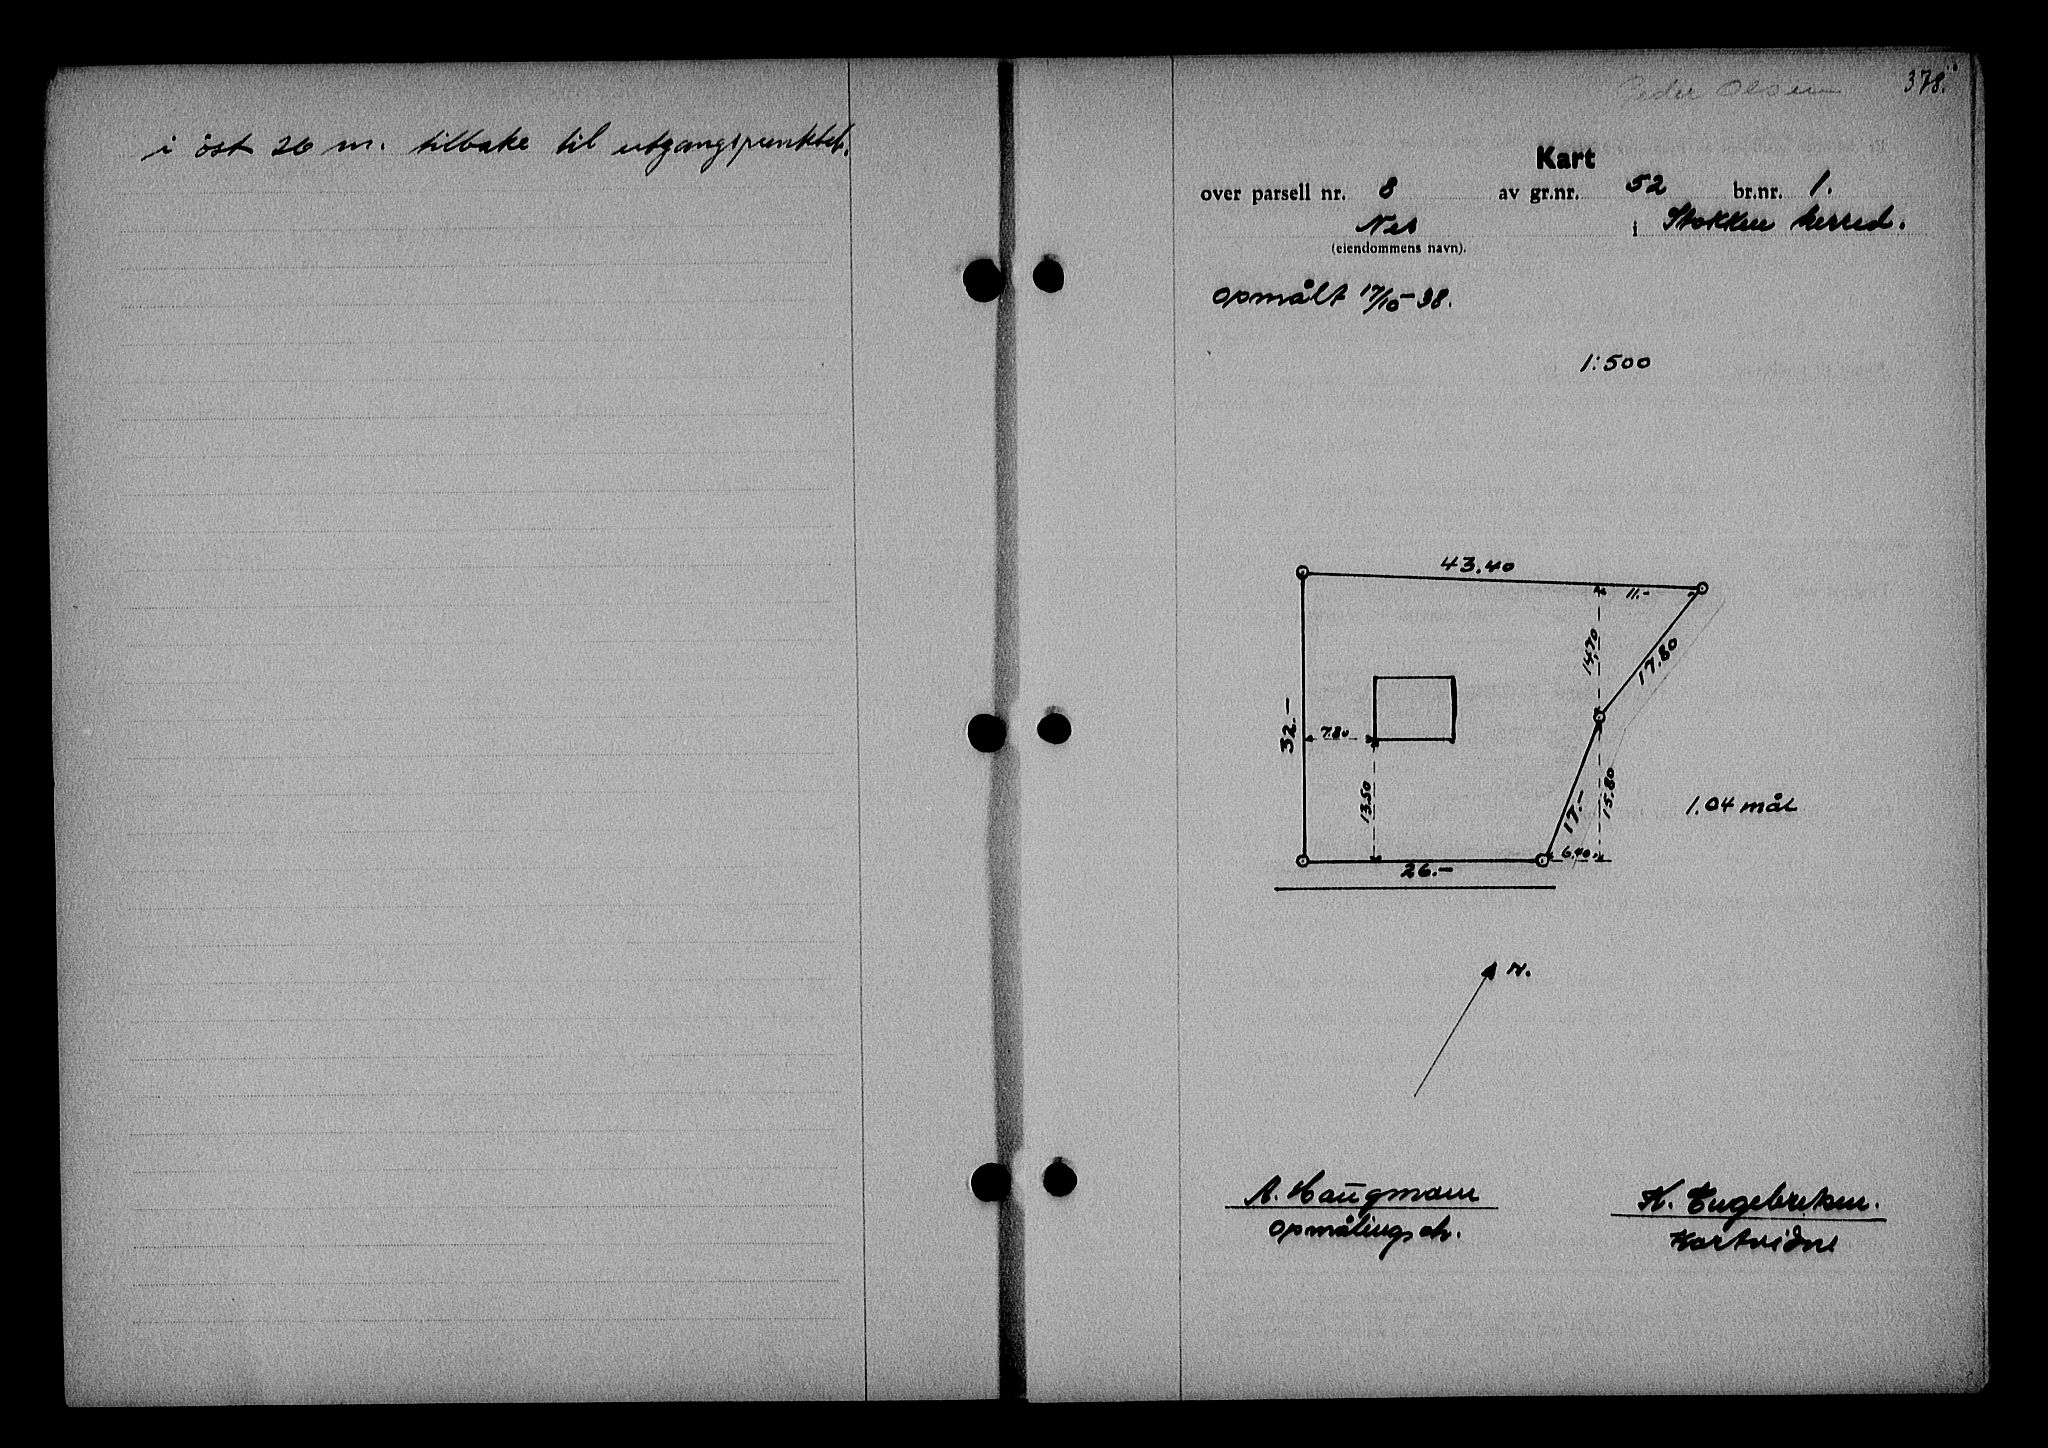 i öst 26 m. tilbake til utgangspunktet.
Peder Olsen
378.
Kart
over parsell nr. 8 av gr.nr. 52 br.nr. 1.
Nes i Stokken herred.
(eiendommens navn).
Opmålt 17/10-38.
1:500
43.40
11.-
14,70
17.80
32.-
7.80
13.50
17.-
15.80
1.04 mål
6.40
26.-
N.
A. Haugmann K. Engebretsen.
Opmålingsch. Kartvidne